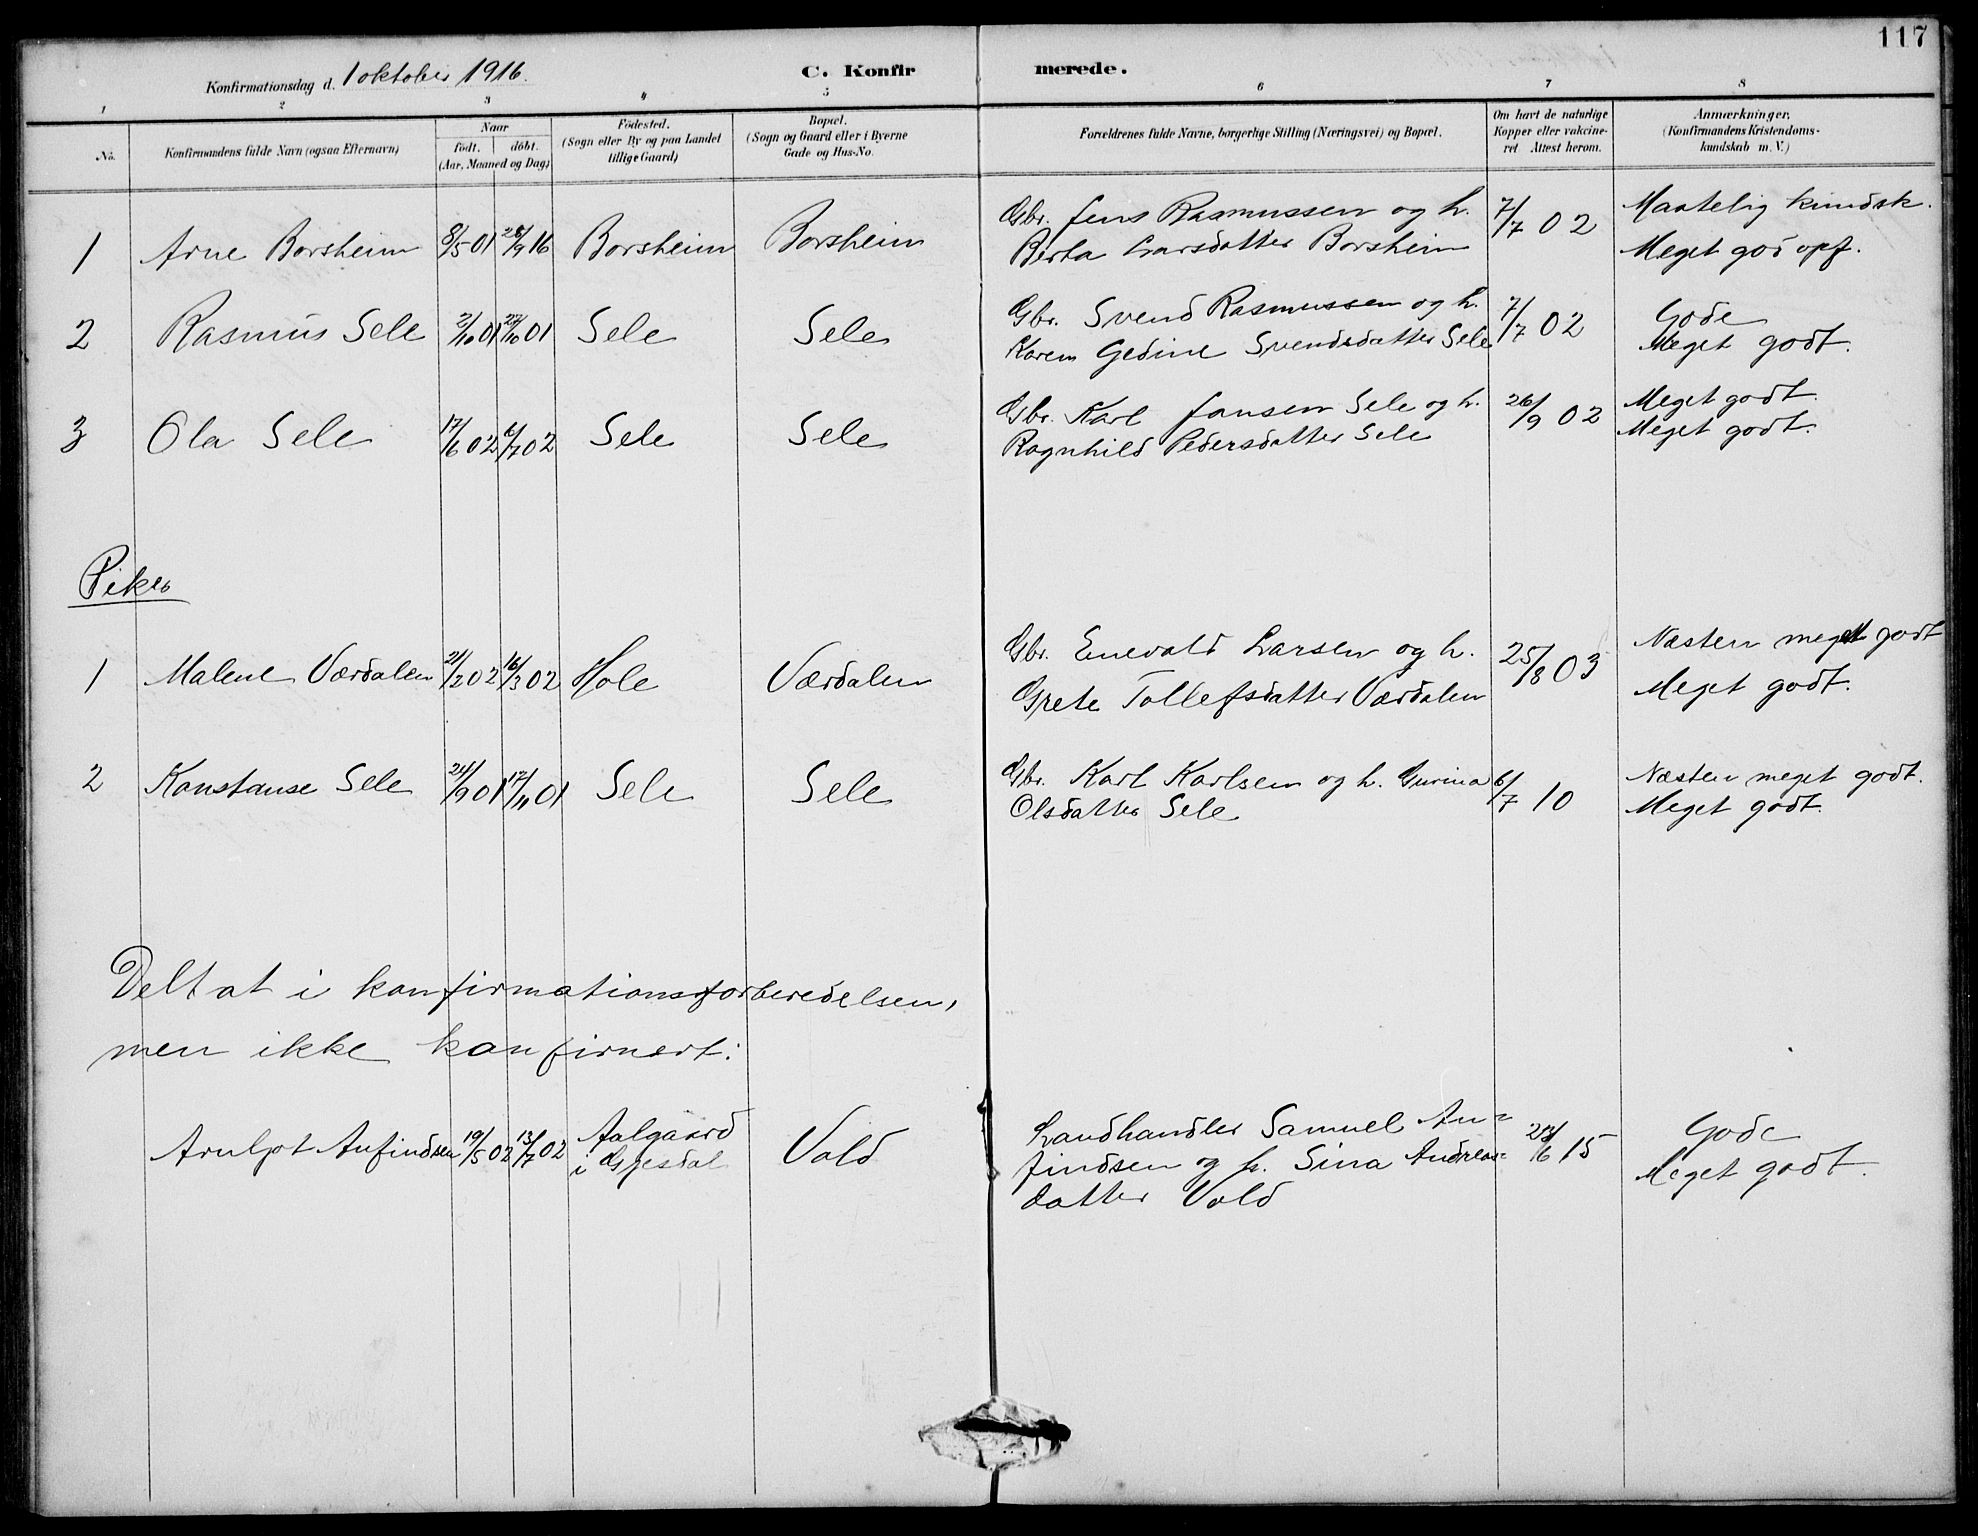 117
Konfirmationsdag d. 1 oktober 1916.
C. Konfirmerede.
1 2 3 4 5 6 7 8
No. Konfirmandens fulde Navn (ogsaa Efternavn) Naar født. døbt. (Aar, Maaned og Dag) Fødested. (Sogn eller By og paa Landet tillige Gaard) Bopæl. (Sogn og Gaard eller i Byerne Gade og Hus-No. Forældrenes fulde Navne, borgerlige Stilling (Næringsvei) og Bopæl. Om havt de naturlige Kopper eller vakcineret Attest herom. Anmærkninger, (Konfirmandens Kristendomskundskab m. V.)
1 Arne Borsheim 8/5 01 28/9 16 Borsheim Borsheim Gbr. Jens Rasmussen og h. 7/7 02 Maatelig kundsk.
Berta Larsdatter Borsheim Meget god opf.
2 Rasmus Sele 2/10 01 27/10 01 Sele Sele Gbr. Svend Rasmussen og h. 7/7 02 Gode
Karen Gedine Svendsdatter Sele Meget godt.
3 Ola Sele 17/6 02 6/7 02 Sele Sele Gbr. Karl Jansen Sele og h. 26/9 02 Meget godt
Ragnhild Pedersdatter Sele Meget godt.
Piker
1 Malene Værdalen 21/2 02 16/3 02 Hole Værdalen Gbr. Enevald Larsen og h. 25/8 03 Næsten meget godt
Grete Tollefsdatter Værdalen Meget godt.
2 Konstanse Sele 24/9 01 17/11 01 Sele Sele Gbr. Karl Karlsen og h. Gurina 6/7 10 Næsten meget godt.
Olsdatter Sele Meget godt.
Deltat i konfirmationsforberedelsen,
men ikke konfirmert:
Arnljot Anfindsen 19/5 02 13/7 02 Aalgaard i Gjesdal Vold Landhandler Samuel An= 15 Gode
findsen og h. Sina Andreas= Meget godt.
datter Vold